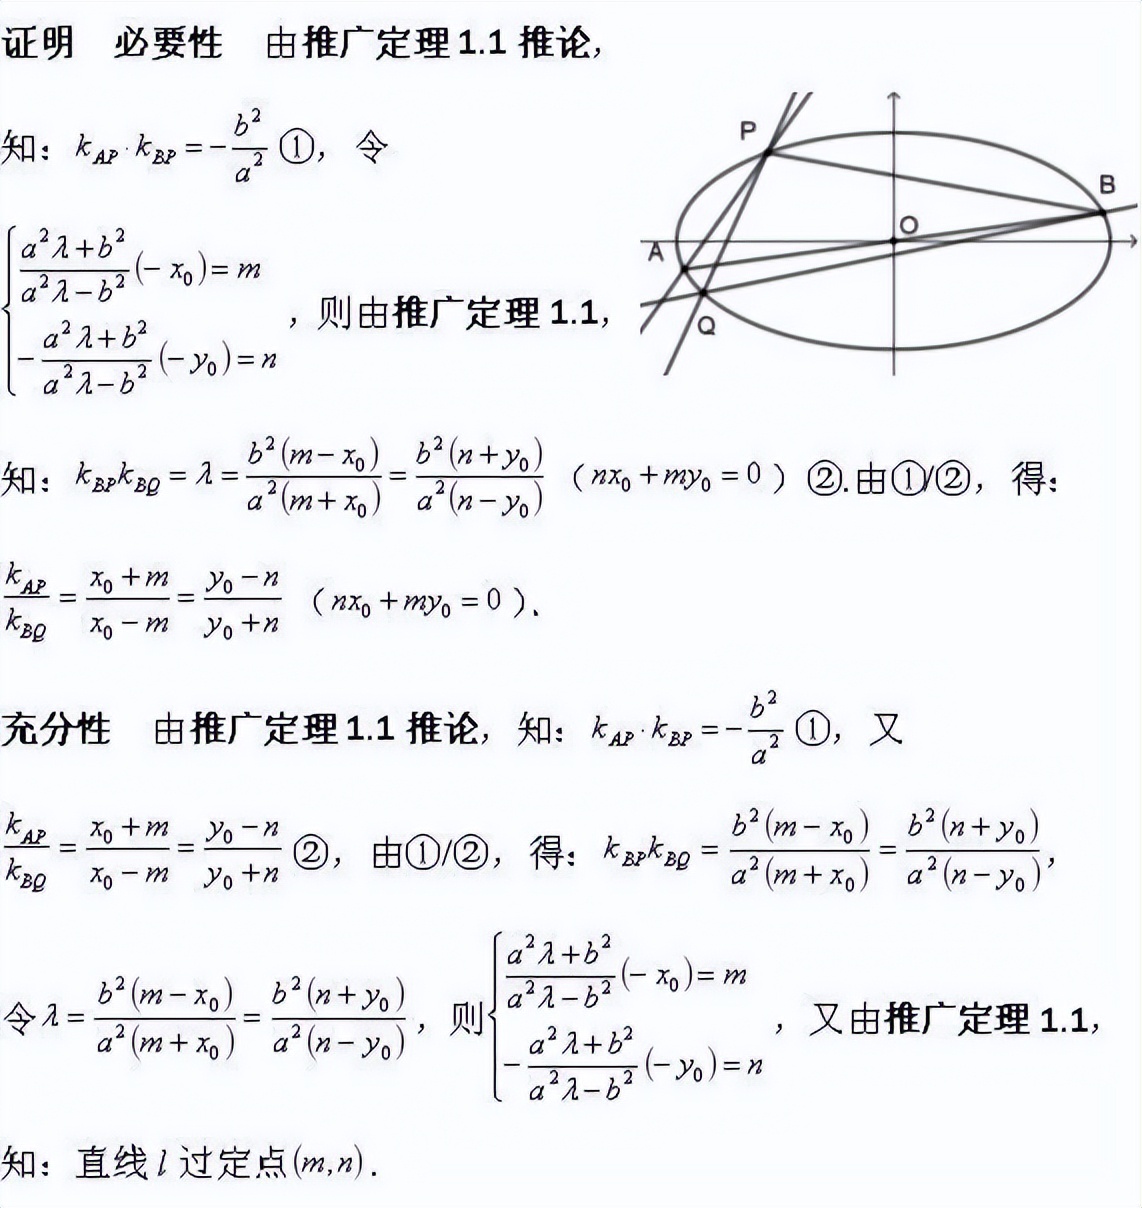 证明 必要性 由推广定理1.1 推论,
知: k_{AP}·k_{BP} = -\frac{b^2}{a^2} ①, 令
\begin{cases} \frac{a^2λ+b^2}{a^2λ-b^2}(-x_0)=m \\ -\frac{a^2λ+b^2}{a^2λ-b^2}(-y_0)=n \end{cases}, 则由推广定理 1.1,
P
B
O
A
Q
知: k_{BP}k_{BQ} = λ = \frac{b^2(m-x_0)}{a^2(m+x_0)} = \frac{b^2(n+y_0)}{a^2(n-y_0)} (nx_0+my_0=0) ②.由①/②, 得:
\frac{k_{AP}}{k_{BQ}} = \frac{x_0+m}{x_0-m} = \frac{y_0-n}{y_0+n} (nx_0+my_0=0).
充分性 由推广定理1.1 推论, 知: k_{AP}·k_{BP} = -\frac{b^2}{a^2} ①, 又
\frac{k_{AP}}{k_{BQ}} = \frac{x_0+m}{x_0-m} = \frac{y_0-n}{y_0+n} ②, 由①/②, 得: k_{BP}k_{BQ} = \frac{b^2(m-x_0)}{a^2(m+x_0)} = \frac{b^2(n+y_0)}{a^2(n-y_0)},
令λ = \frac{b^2(m-x_0)}{a^2(m+x_0)} = \frac{b^2(n+y_0)}{a^2(n-y_0)}, 则\begin{cases} \frac{a^2λ+b^2}{a^2λ-b^2}(-x_0)=m \\ -\frac{a^2λ+b^2}{a^2λ-b^2}(-y_0)=n \end{cases}, 又由推广定理 1.1,
知: 直线 l 过定点(m,n).